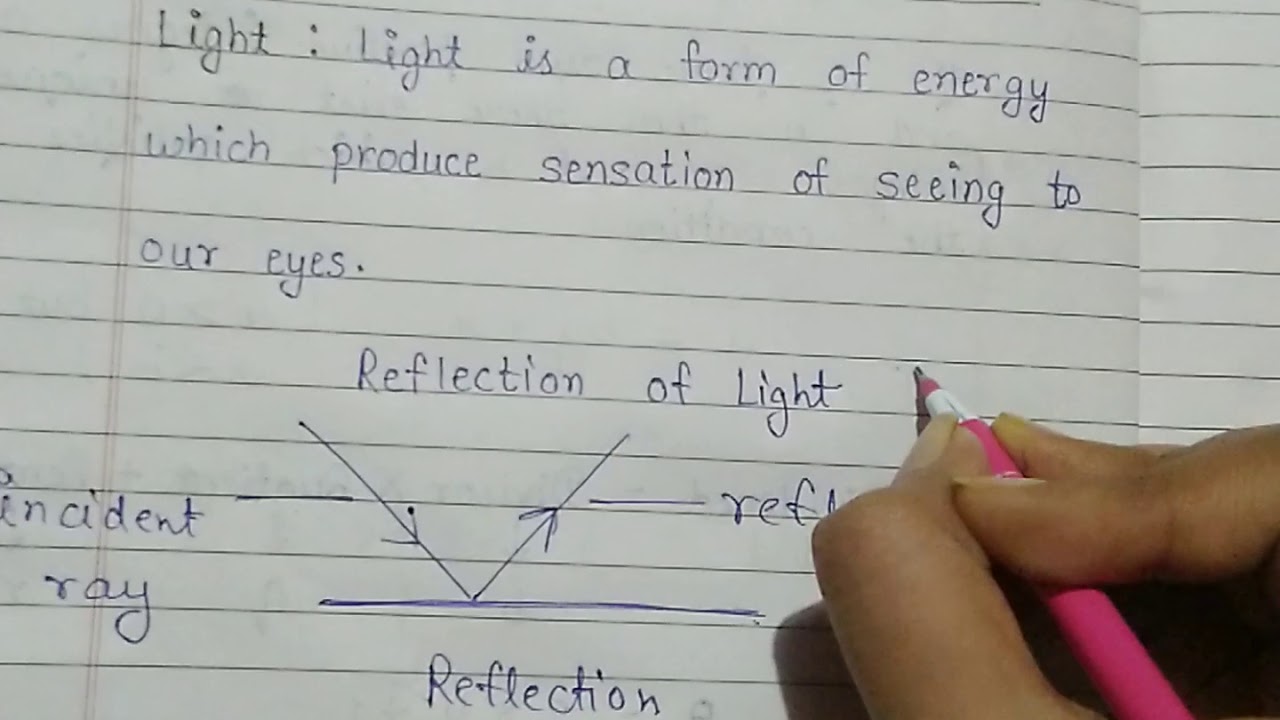 Light : Light is a form of energy
which produce sensation of seeing to
our eyes.
Reflection of Light
incident
ray
refl
Reflection